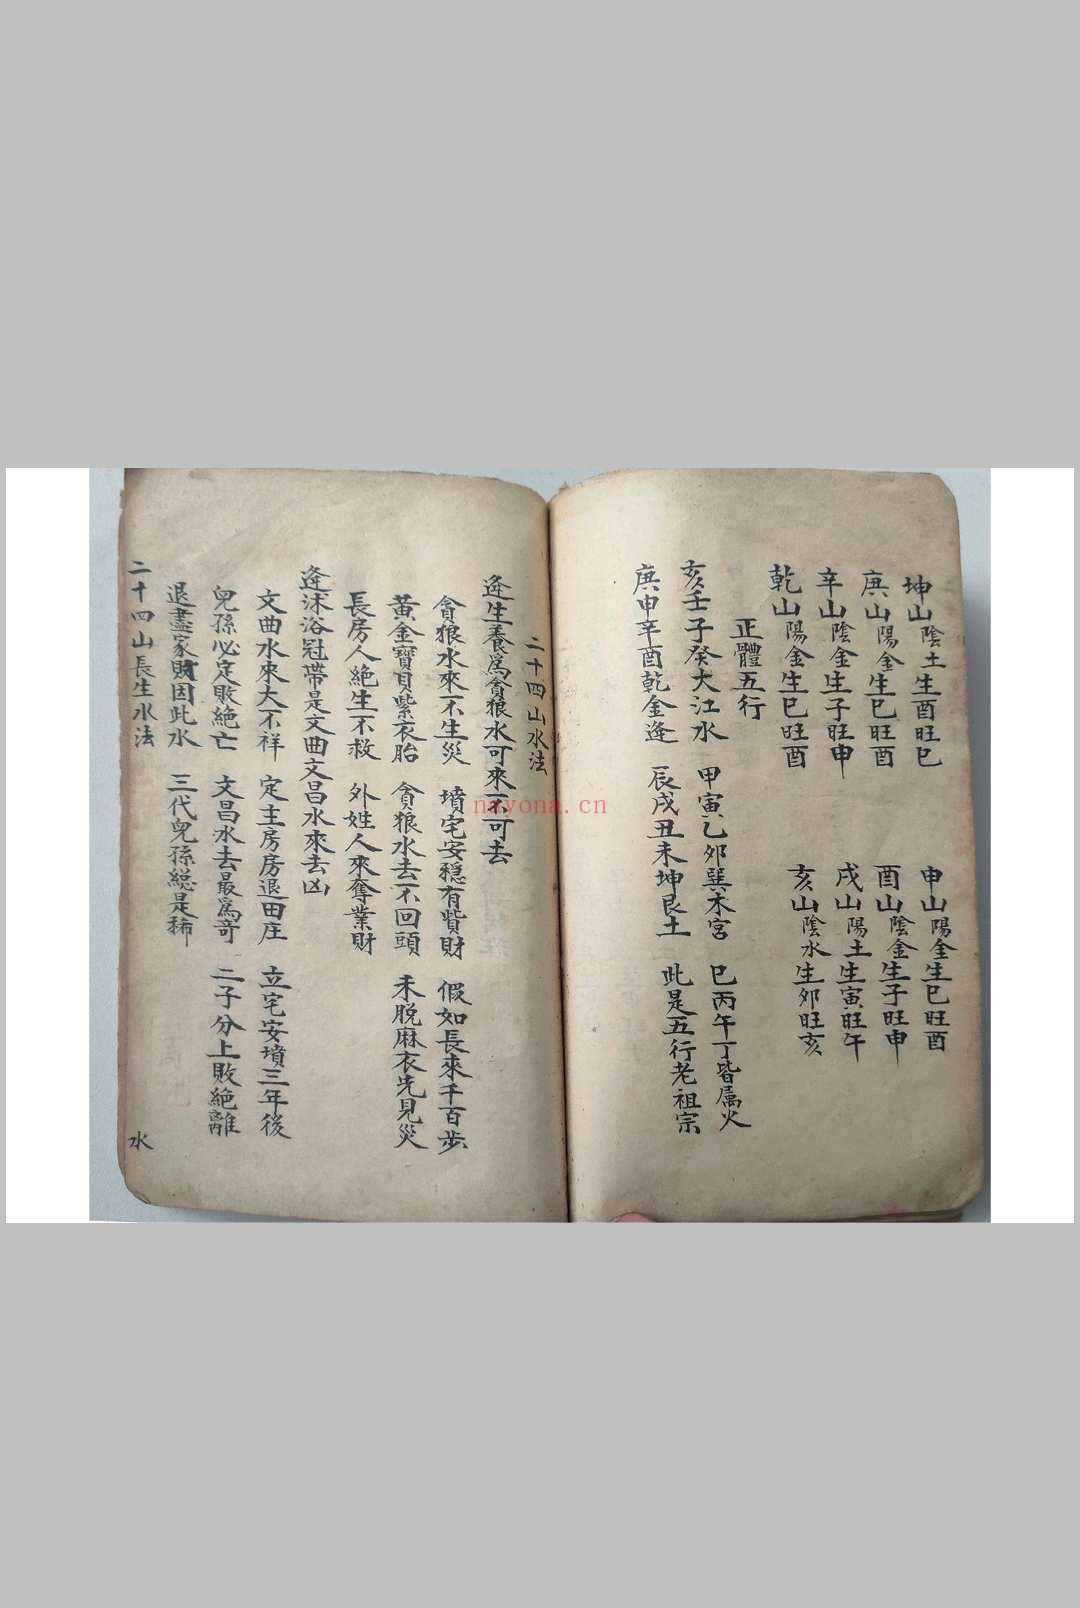 坤山陰土生酉旺巳 申山陽金生巳旺酉
庚山陽金生巳旺酉 酉山陰金生子旺申
辛山陰金生子旺申 戌山陽土生寅旺午
乾山陽金生巳旺酉 亥山陰水生卯旺亥
正體五行
亥壬子癸大江水 甲寅乙卯巽木宮 巳丙午丁皆属火
庚申辛酉乾金逢 辰戌丑未坤艮土 此是五行老祖宗
二十四山水法
逢生養爲貪狼水可來不可去
貪狼水來不生災 墳宅安穩有貲財 假如長來千百步
黃金寶貝紫衣胎 貪狼水去不回頭 未脱麻衣先見災
長房人絶生不救 外姓人來奪業財
逢沐浴冠帶是文曲文昌水來去凶
文曲水來大不祥 定主房房退田庄 立宅安墳三年後
兒孫必定敗絶亡 文昌水去最爲奇 二子分上敗絶離
退盡家財因此水 三代兒孫総是稀
二十四山長生水法 水
nayona.cn